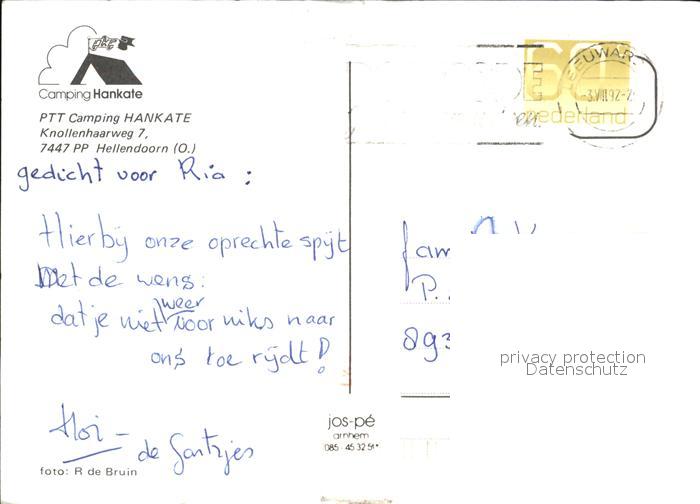 PTT
Camping Hankate
PTT Camping HANKATE
Knollenhaarweg 7,
7447 PP Hellendoorn (O.)
gedicht voor Ria :
Hierbij onze oprechte spijt
Met de wens:
dat je niet weer voor niks naar
ons toe rijdt!
Hoi -
de Santjes
foto: R de Bruin
jos-pé
arnhem
085-45 32 51*
60
nederland
LEEUWAR
-3.VII.92-2
fam
P.
893
privacy protection
Datenschutz